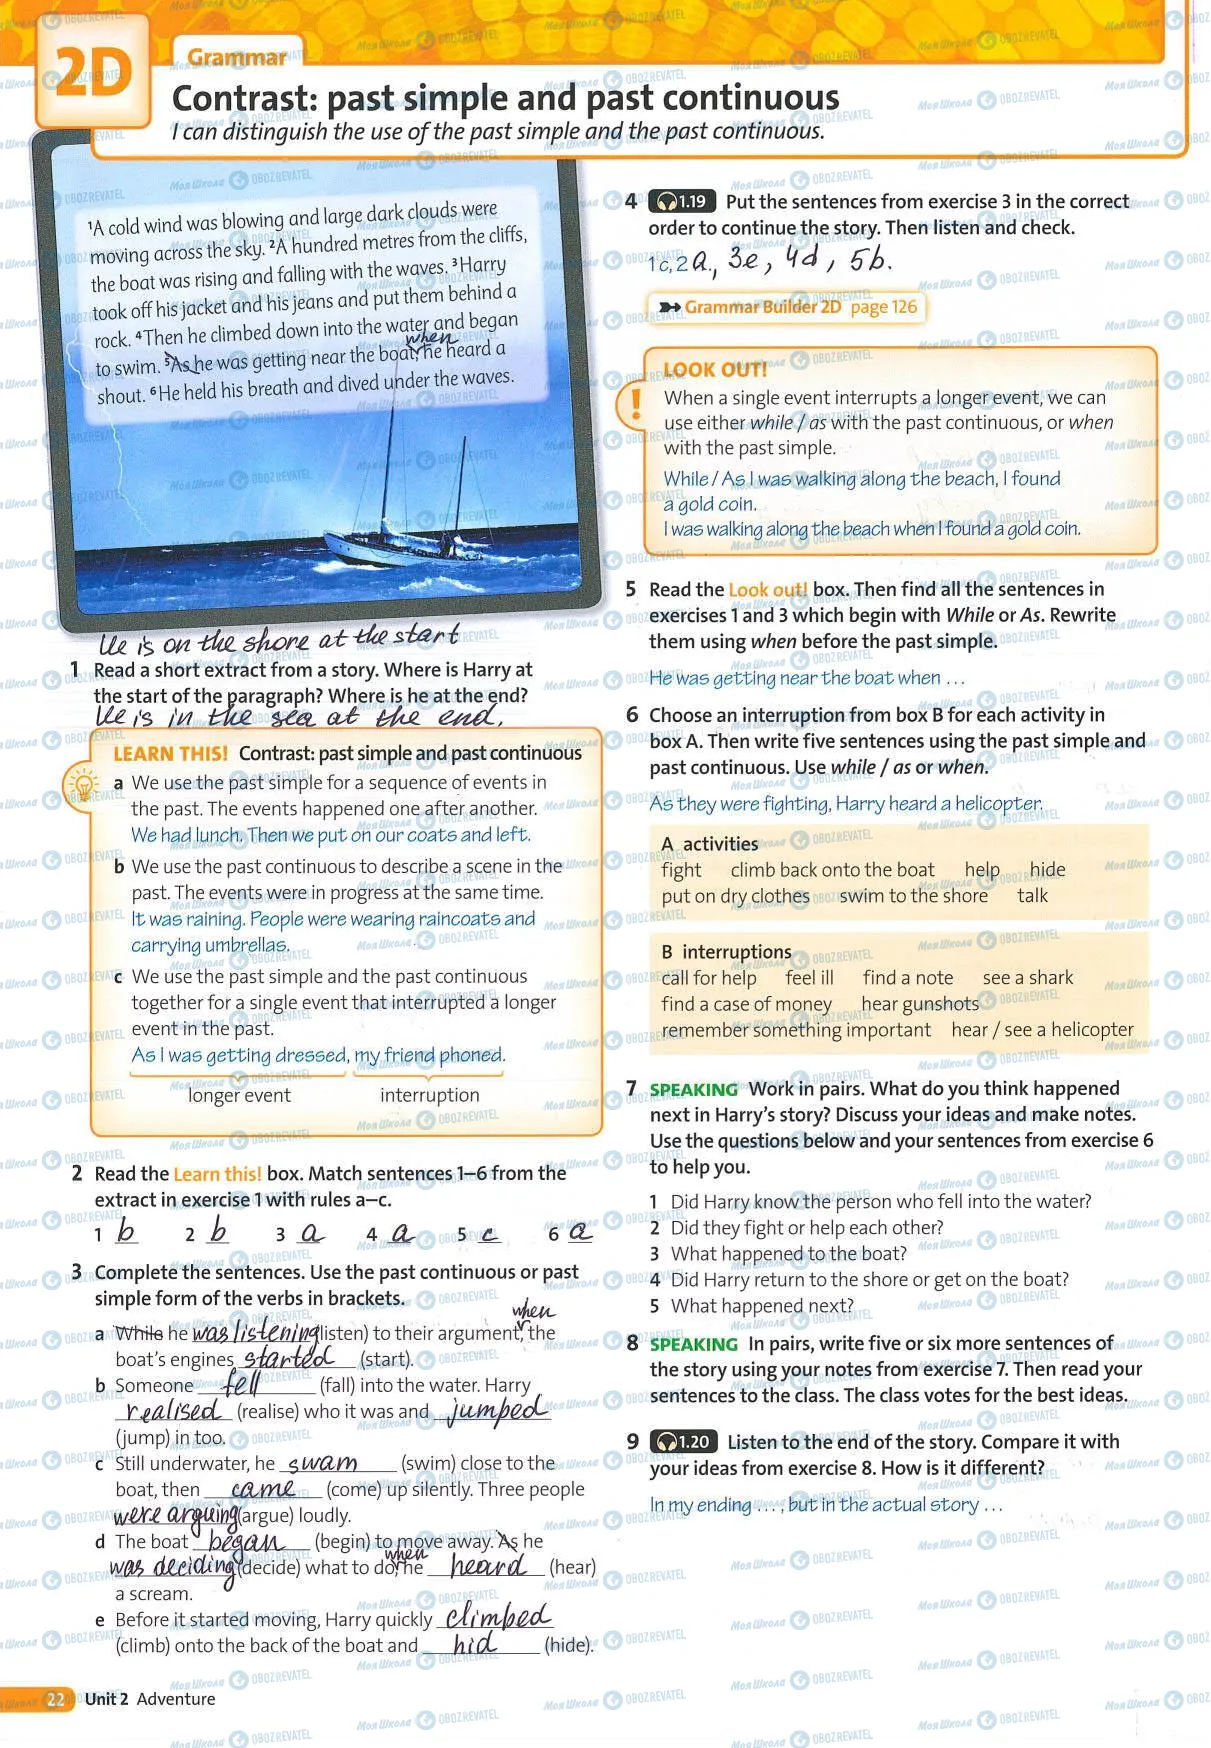 2D
Grammar
Contrast: past simple and past continuous
I can distinguish the use of the past simple and the past continuous.
¹A cold wind was blowing and large dark clouds were
moving across the sky. ²A hundred metres from the cliffs,
the boat was rising and falling with the waves. ³Harry
took off his jacket and his jeans and put them behind a
rock. ⁴Then he climbed down into the water and began
when
to swim. ⁵As he was getting near the boat, he heard a
shout. ⁶He held his breath and dived under the waves.
He is on the shore at the start
1 Read a short extract from a story. Where is Harry at
the start of the paragraph? Where is he at the end?
He is in the sea at the end.
LEARN THIS! Contrast: past simple and past continuous
a We use the past simple for a sequence of events in
the past. The events happened one after another.
We had lunch. Then we put on our coats and left.
b We use the past continuous to describe a scene in the
past. The events were in progress at the same time.
It was raining. People were wearing raincoats and
carrying umbrellas.
c We use the past simple and the past continuous
together for a single event that interrupted a longer
event in the past.
As I was getting dressed, my friend phoned.
longer event interruption
2 Read the Learn this! box. Match sentences 1–6 from the
extract in exercise 1 with rules a–c.
1 b 2 b 3 a 4 a 5 c 6 a
3 Complete the sentences. Use the past continuous or past
simple form of the verbs in brackets.
when
a While he was listening (listen) to their argument, the
boat's engines started (start).
b Someone fell (fall) into the water. Harry
realised (realise) who it was and jumped
(jump) in too.
c Still underwater, he swam (swim) close to the
boat, then came (come) up silently. Three people
were arguing (argue) loudly.
d The boat began (begin) to move away. As he
when
was deciding (decide) what to do, he heard (hear)
a scream.
e Before it started moving, Harry quickly climbed
(climb) onto the back of the boat and hid (hide).
22 Unit 2 Adventure
4 1.19 Put the sentences from exercise 3 in the correct
order to continue the story. Then listen and check.
1 c, 2 a., 3e, 4d, 5b.
Grammar Builder 2D page 126
LOOK OUT!
! When a single event interrupts a longer event, we can
use either while / as with the past continuous, or when
with the past simple.
While / As I was walking along the beach, I found
a gold coin.
I was walking along the beach when I found a gold coin.
5 Read the Look out! box. Then find all the sentences in
exercises 1 and 3 which begin with While or As. Rewrite
them using when before the past simple.
He was getting near the boat when ...
6 Choose an interruption from box B for each activity in
box A. Then write five sentences using the past simple and
past continuous. Use while / as or when.
As they were fighting, Harry heard a helicopter.
A activities
fight climb back onto the boat help hide
put on dry clothes swim to the shore talk
B interruptions
call for help feel ill find a note see a shark
find a case of money hear gunshots
remember something important hear / see a helicopter
7 SPEAKING Work in pairs. What do you think happened
next in Harry's story? Discuss your ideas and make notes.
Use the questions below and your sentences from exercise 6
to help you.
1 Did Harry know the person who fell into the water?
2 Did they fight or help each other?
3 What happened to the boat?
4 Did Harry return to the shore or get on the boat?
5 What happened next?
8 SPEAKING In pairs, write five or six more sentences of
the story using your notes from exercise 7. Then read your
sentences to the class. The class votes for the best ideas.
9 1.20 Listen to the end of the story. Compare it with
your ideas from exercise 8. How is it different?
In my ending ... , but in the actual story ...
Моя Школа OBOZREVATEL